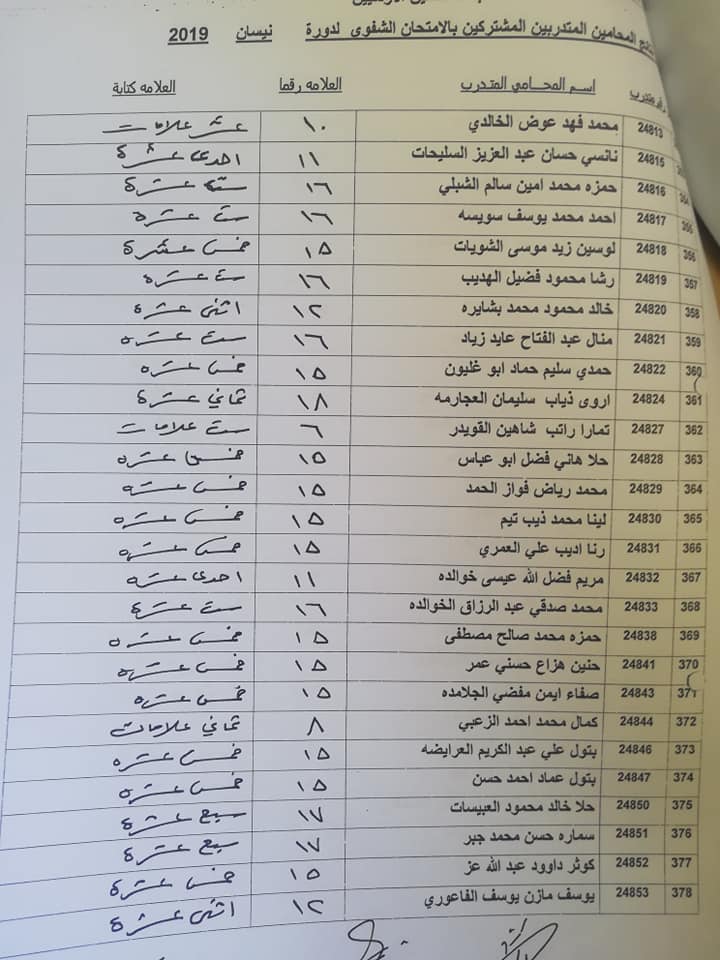 المحامين المتدربين المشتركين بالامتحان الشفوي لدورة نيسان 2019
رقم متدرب اسم المحامي المتدرب العلامه رقما العلامه كتابة
24813 محمد فهد عوض الخالدي ١٠ عشر علامات
24815 نانسي حسان عبد العزيز السليحات ١١ احدى عشرة
354 24816 حمزه محمد امين سالم الشبلي ١٦ ستة عشرة
355 24817 احمد محمد يوسف سويسه ١٦ ست عشرة
356 24818 لوسين زيد موسى الشويات ١٥ خمس عشرة
357 24819 رشا محمود فضيل الهديب ١٦ ست عشرة
358 24820 خالد محمود محمد بشايره ١٢ اثنى عشرة
359 24821 منال عبد الفتاح عايد زياد ١٦ ست عشرة
360 24822 حمدي سليم حماد ابو غليون ١٥ خمس عشره
361 24824 اروى ذياب سليمان العجارمه ١٨ ثماني عشرة
362 24827 تمارا راتب شاهين القويدر ٦ ست علامات
363 24828 حلا هاني فضل ابو عباس ١٥ خمس عشره
364 24829 محمد رياض فواز الحمد ١٥ خمس عشره
365 24830 لينا محمد ذيب تيم ١٥ خمس عشره
366 24831 رنا اديب علي العمري ١٥ خمس عشره
367 24832 مريم فضل الله عيسى خوالده ١١ احدى عشره
368 24833 محمد صدقي عبد الرزاق الخوالده ١٦ ست عشرة
369 24838 حمزه محمد صالح مصطفى ١٥ خمس عشره
370 24841 حنين هزاع حسني عمر ١٥ خمس عشره
371 24843 صفاء ايمن مفضي الجلامده ١٥ خمس عشره
372 24844 كمال محمد احمد الزعبي ٨ ثماني علامات
373 24846 بتول علي عبد الكريم العرايضه ١٥ خمس عشره
374 24847 بتول عماد احمد حسن ١٥ خمس عشرة
375 24850 حلا خالد محمود العبيسات ١٧ سبع عشرة
376 24851 سماره حسن محمد جبر ١٧ سبع عشرة
377 24852 كوثر داوود عبد الله عز ١٥ خمس عشرة
378 24853 يوسف مازن يوسف الفاعوري ١٢ اثنى عشرة